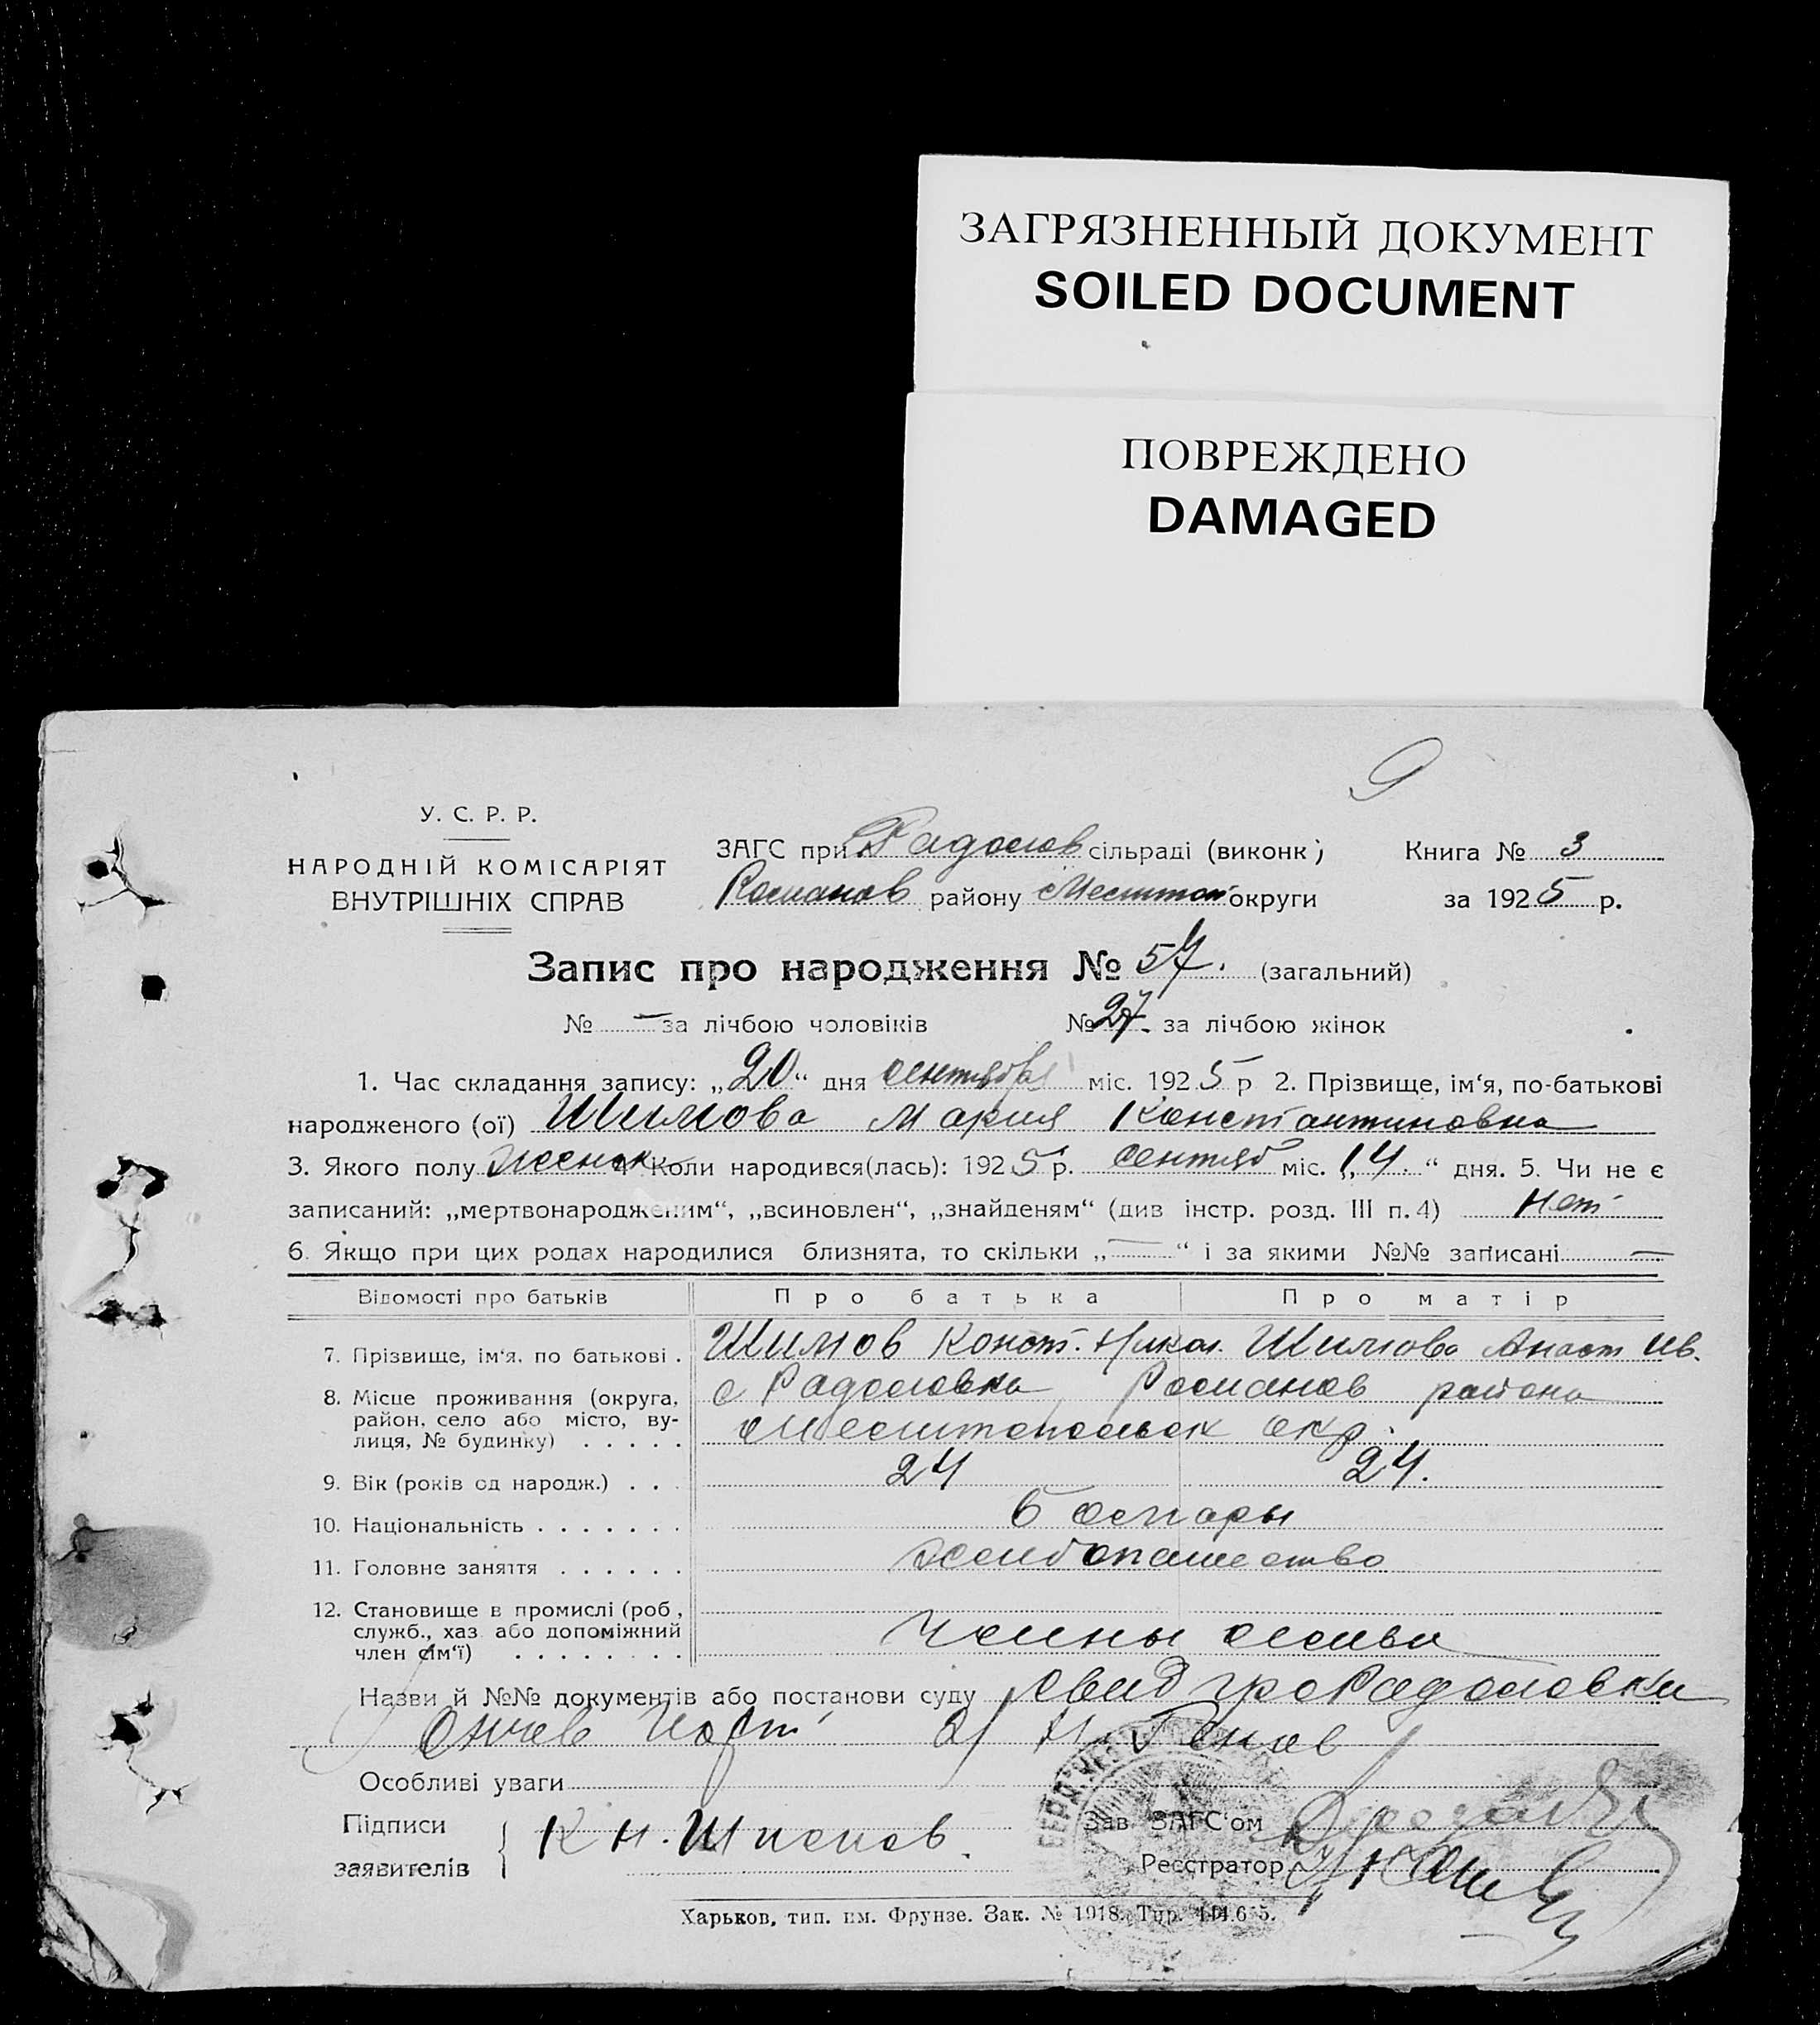 ЗАГРЯЗНЕННЫЙ ДОКУМЕНТ
SOILED DOCUMENT
ПОВРЕЖДЕНО
DAMAGED
У. С. Р. Р.
НАРОДНІЙ КОМІСАРІЯТ
ВНУТРІШНІХ СПРАВ
ЗАГС при Радолов сільраді (виконк.)
Романов району Мелитоп округи
Книга № 3
за 1925 р.
Запис про народження № 57. (загальний)
№ — за лічбою чоловіків № 27. за лічбою жінок
1. Час складання запису: „20“ дня сентября міс. 1925 р 2. Прізвище, ім‘я, по-батькові
народженого (ої) Шилова Мария Константиновна
3. Якого полу женск 4 Коли народився(лась): 1925 р. сентяб міс. „14.“ дня. 5. Чи не є
записаний: „мертвонародженим“, „всиновлен“, „знайденям“ (див інстр. розд. III п. 4) Нет
6. Якщо при цих родах народилися близнята, то скільки „—“ і за якими №№ записані —
Відомості про батьків Про батька Про матір
7. Прізвище, ім‘я, по батькові . Шилов Конст. Никол. Шилова Анаст Ив.
8. Місце проживання (округа,
район, село або місто, ву-
лиця, № будинку) . . . . .
с Радоловка Романов района
Мелитопольск окр.
9. Вік (років од народж.) . . . 24 24.
10. Національність . . . . . . . Болгары
11. Головне заняття . . . . . . хлебопашество
12. Становище в промислі (роб.,
служб., хаз. або допоміжний
член сім‘ї) . . . . . . . .
члены семьи
Назви й №№ документів або постанови суду Свид Радоловки
Особливі уваги
Підписи
заявителів
К Н. Шилов.
Зав. ЗАГС‘ом
Реєстратор
Харьков, тип. им. Фрунзе. Зак. № 1918.